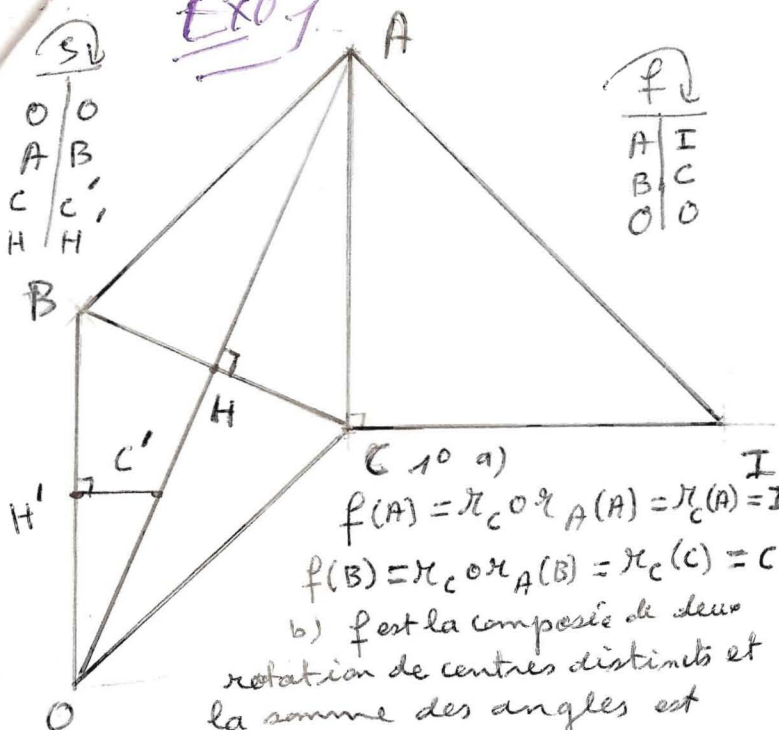 Exo 1
S
O | O
A | B
C | C'
H | H'
f
A | I
B | C
O | O
A
B
H
C'
H'
C
I
O
1° a)
f(A) = r_C o r_A (A) = r_C(A) = I
f(B) = r_C o r_A (B) = r_C (C) = C
b) f est la composée de deux
rotation de centres distincts et
la somme des angles est